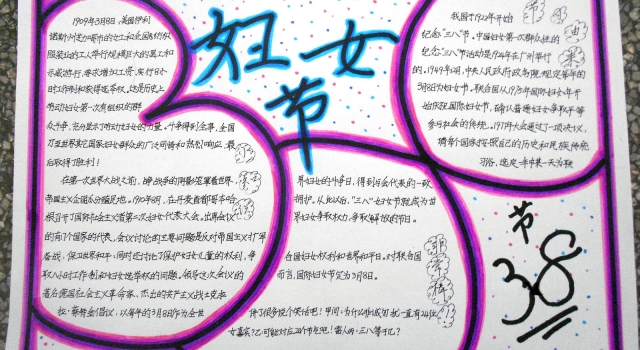 妇女节
1909年3月8日,美国伊利
诺斯州芝加哥市的女工和全国纺织
服装业的工人举行规模巨大的罢工和
示威游行,要求增加工资,实行8小
时工作制和获得选举权。这是历史上
劳动妇女第一次有组织的群
众斗争,充分显示了劳动妇女的力量。斗争得到全市、全国
乃至世界其它国家妇女群众的广泛同情和热烈响应,最
后取得了胜利!
在第一次世界大战之前,战争的阴影笼罩着世界,
帝国主义企图瓜分殖民地。1910年8月,在丹麦首都哥本哈
根召开了国际社会主义者第二次妇女代表大会。出席会议
的有17个国家的代表,会议讨论的主要问题是反对帝国主义扩军
备战,保卫世界和平;同时还讨论了保护妇女儿童的权利,争
取八小时工作制和妇女选举权的问题。领导这次会议的
著名德国社会主义革命家、杰出的共产主义战士克拉
拉·蔡特金倡议,以每年的3月8日作为全世
界妇女的斗争日,得到与会代表的一致
拥护。从此以后,"三八"妇女节就成为世
界妇女争取权力、争取解放的节日。
在国妇女权利和世界和平日。对联合国
而言,国际妇女节定为3月8日。
我国于1922年开始
纪念"三八"节。中国妇女第一次群众性的
纪念"三八"节活动是1924年在广州举行
的。1949年12月,中央人民政府政务院规定每年的
3月8日为妇女节。联合国从1975年国际妇女年开
始庆祝国际妇女节,确认普通妇女争取平等
参与社会的传统。1977年大会通过了一项决议,
请每个国家按照自己的历史和民族传统
习俗,选定一年中某一天为联
节
3.8